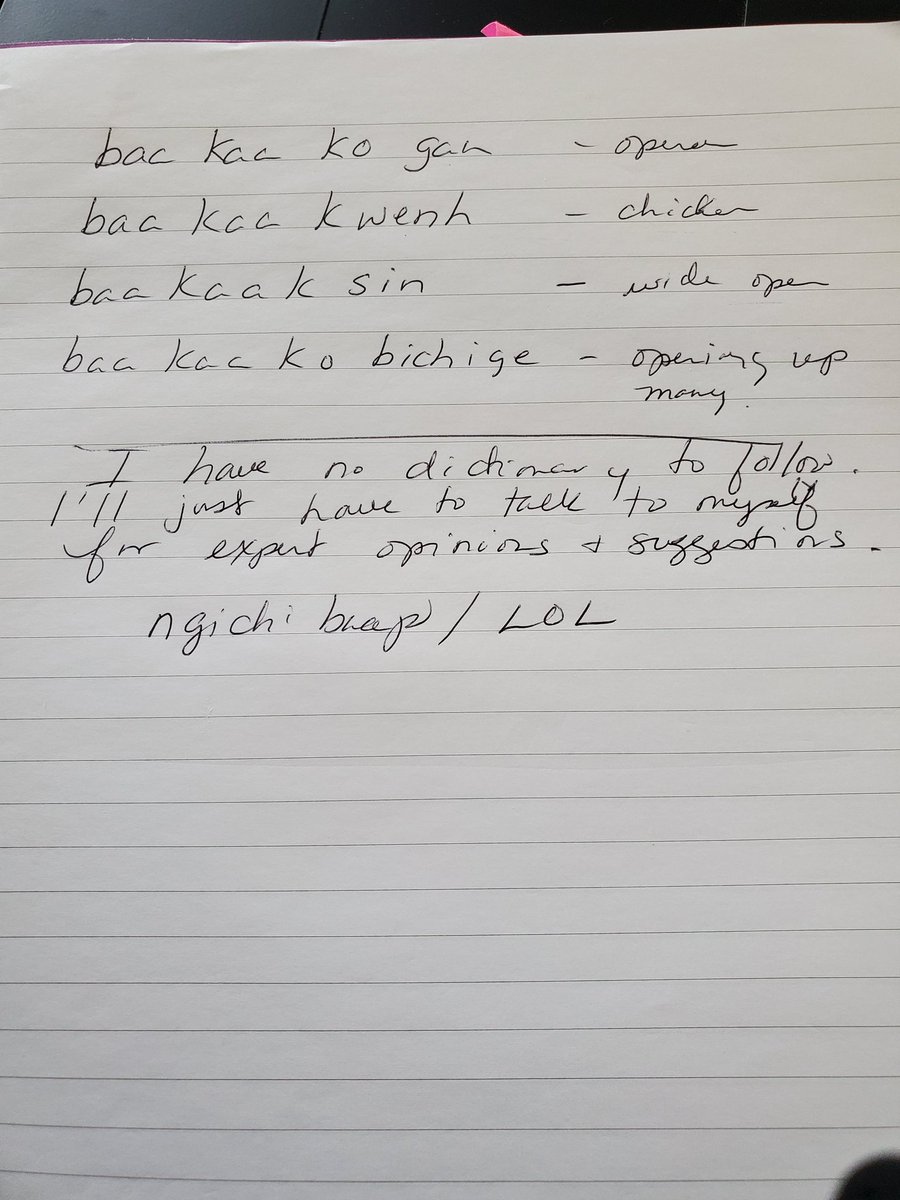 baa kaa ko gan - opener
baa kaa kwenh - chicken
baa kaa k sin - wide open
baa kaa ko bichige - opening up
many.
I have no dictionary to follow.
I'll just have to talk to myself
for expert opinions + suggestions.
ngichi baap / LOL